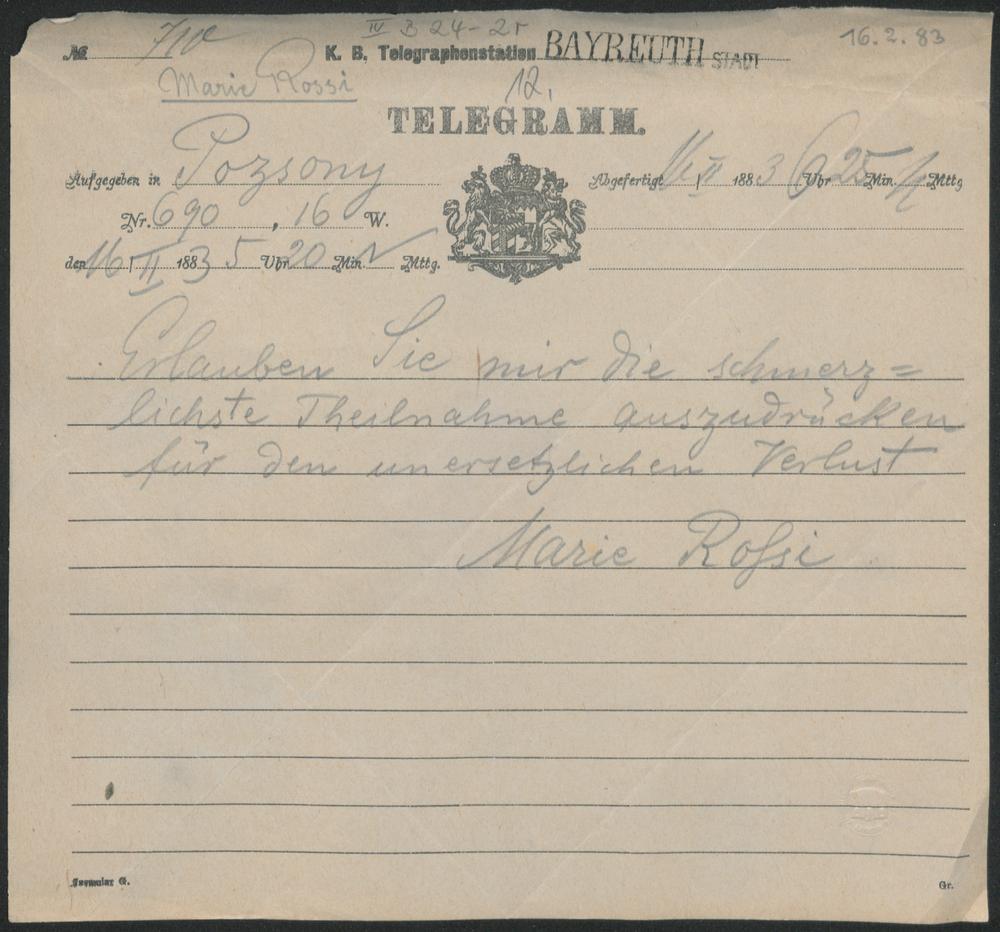 IV B 24-2r
16.2.83
№ 710 K. B. Telegraphenstation BAYREUTH STADT
Marie Rossi
12.
TELEGRAMM.
Aufgegeben in Pozsony
Abgefertigt 16/II 1883 6 Uhr 25 Min. Mttg
Nr. 690, 16 W.
den 16/II 1883 5 Uhr 20 Min. Mttg.
Erlauben Sie mir die schmerz=
lichste Theilnahme auszudrücken
für den unersetzlichen Verlust
Marie Roſsi
Formular G.
Gr.